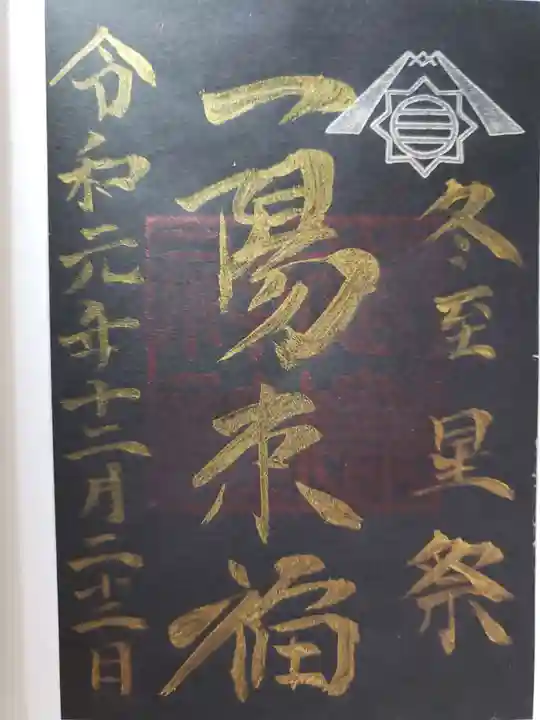 冬至 星祭
一陽来福
令和元年十二月二十二日